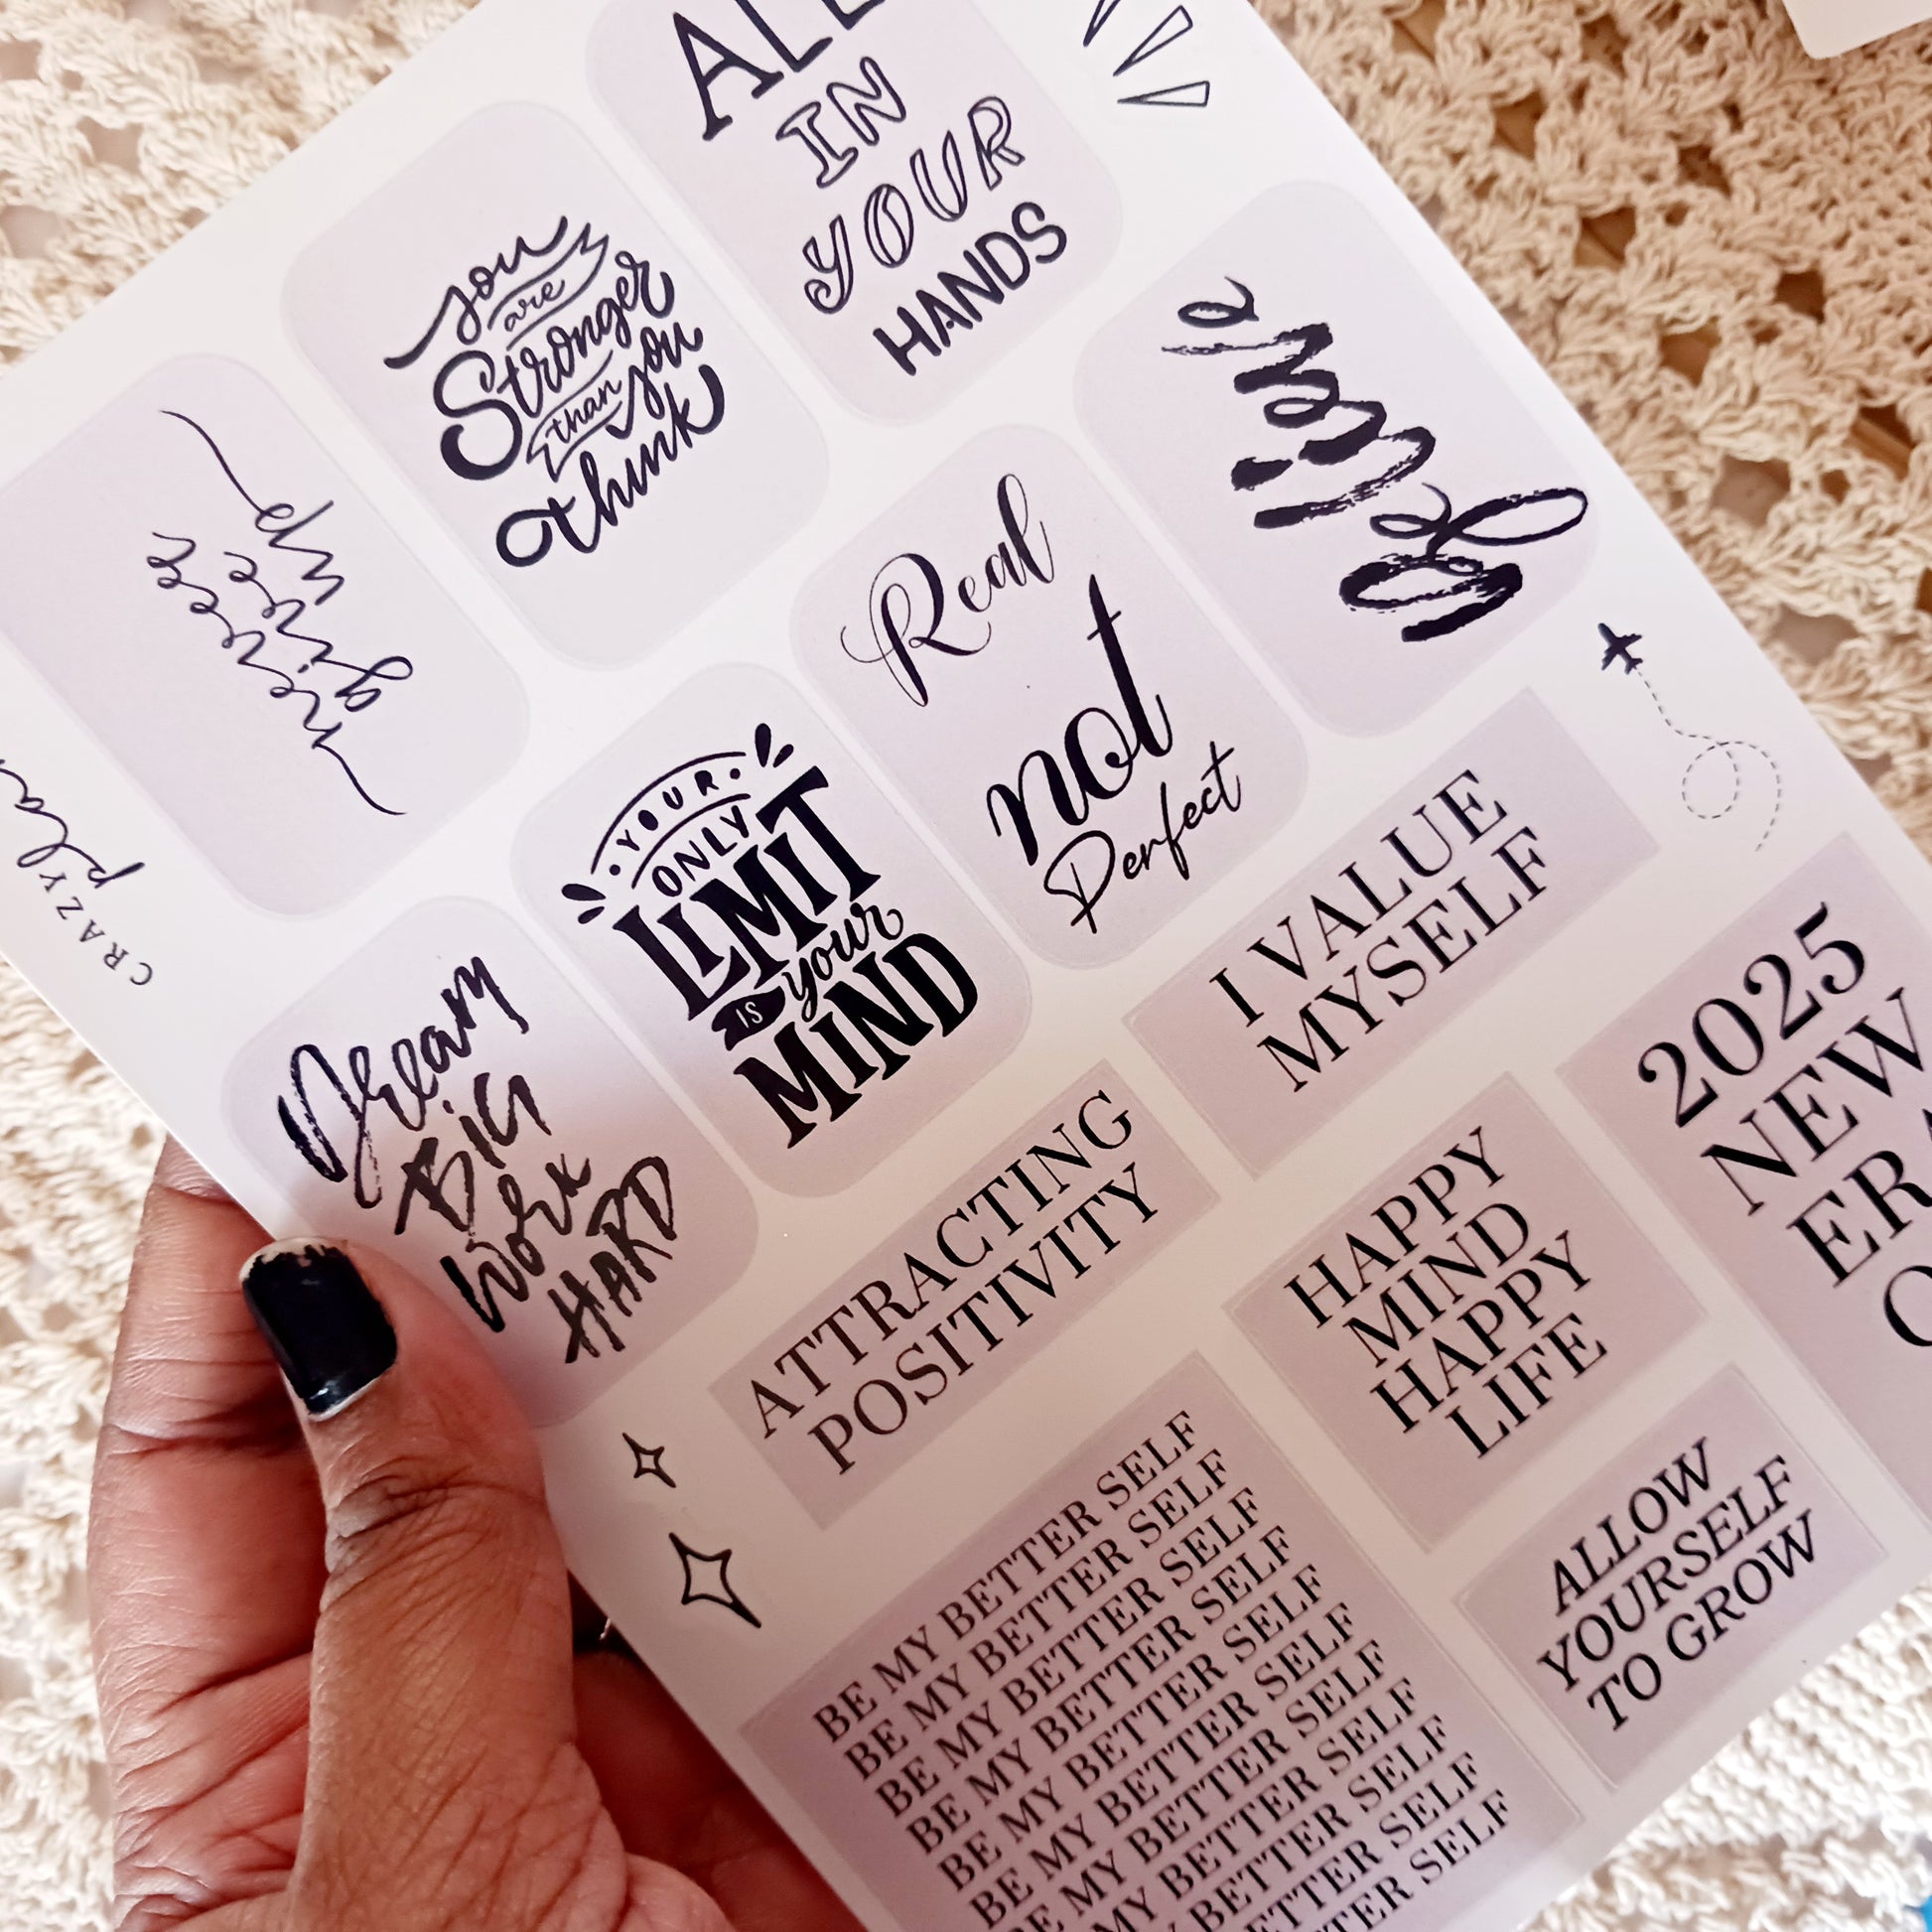 ALL
IN
YOUR
HANDS
you
are
Stronger
than you
think
never
give
up
Believe
Real
not
Perfect
YOUR
ONLY
LIMIT
IS your
MIND
Dream
BIG
Work
HARD
CRAZY
I VALUE
MYSELF
ATTRACTING
POSITIVITY
2025
NEW
HAPPY
MIND
HAPPY
LIFE
ALLOW
YOURSELF
TO GROW
BE MY BETTER SELF
BE MY BETTER SELF
BE MY BETTER SELF
BE MY BETTER SELF
BE MY BETTER SELF
BE MY BETTER SELF
BE MY BETTER SELF
MY BETTER SELF
BETTER SELF
SELF
SELF